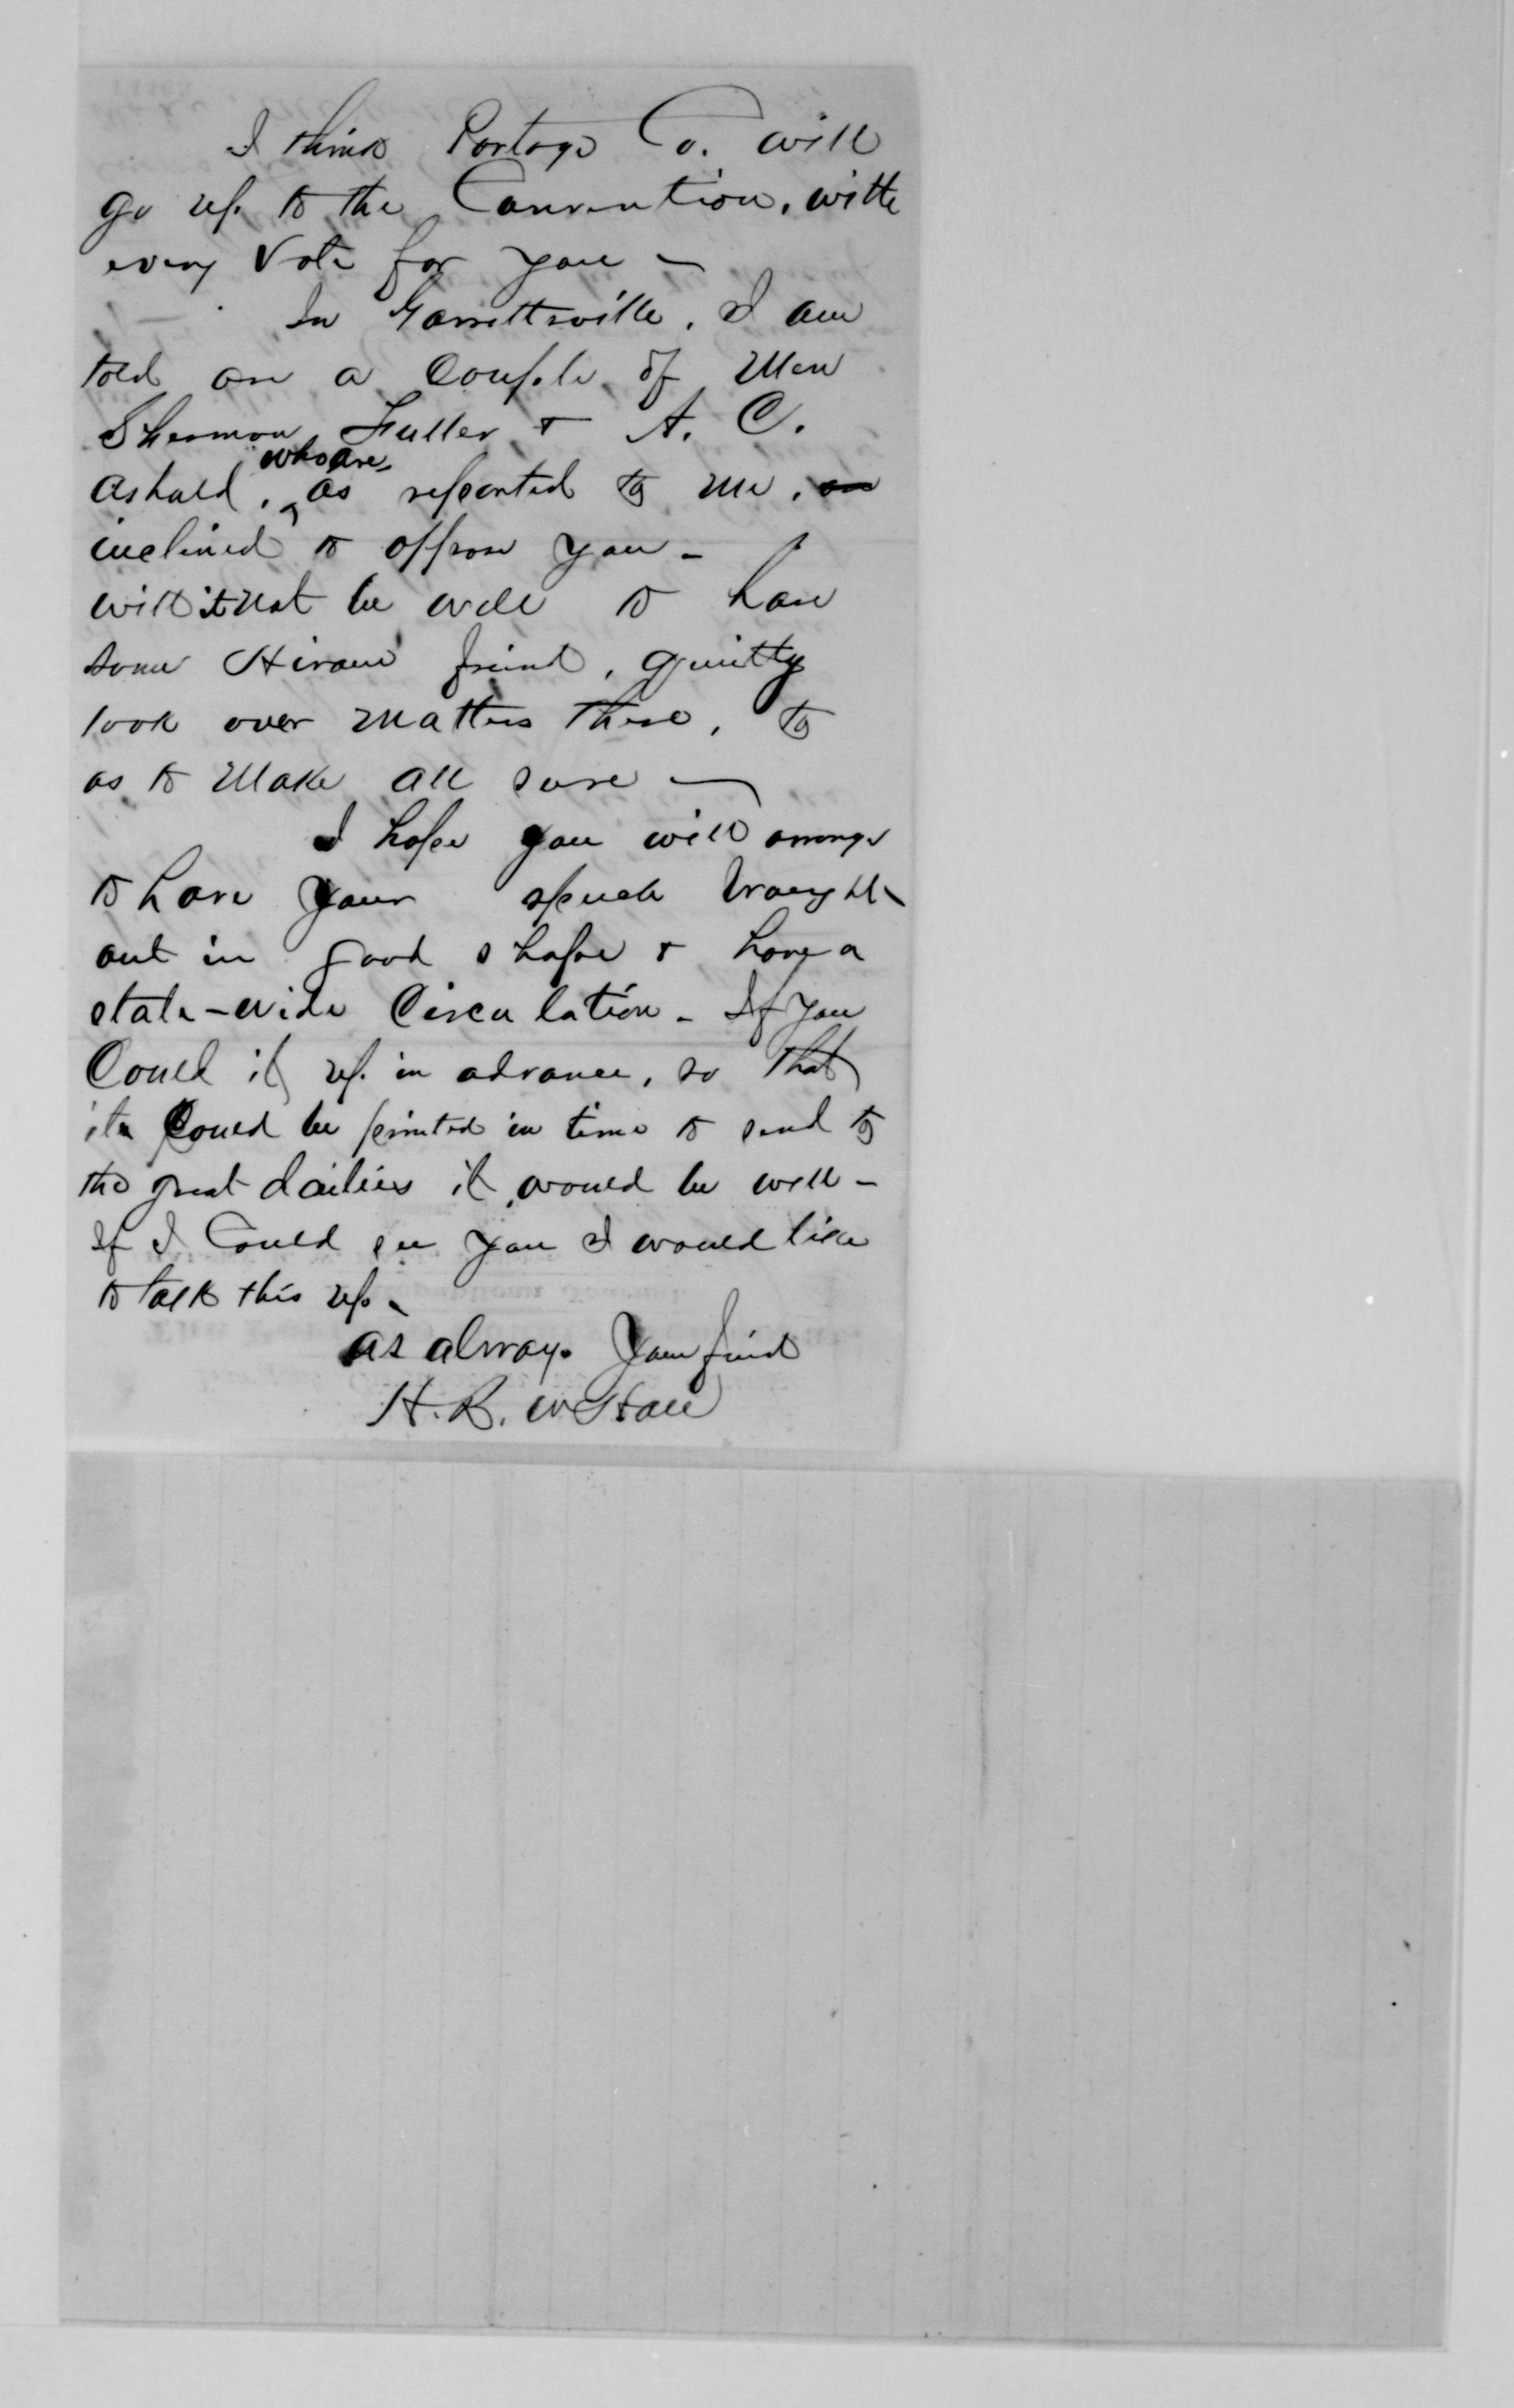 I think Portage Co. will
go up to the Convention, with
every Vote for you —
In Garrettsville, I am
told are a Couple of Men
Sherman Fuller & A. C.
who are
as reported to me, are
inclined to oppose you -
will it not be well to have
some Hiram friend, quietly
look over matters there, to
as to Make all sure —
I hope you will arrange
to have your speech brought
out in good shape & have a
state-wide Circulation - If you
Could it up in advance, so that
it Could be printed in time to send to
the great dailies it would be well -
If I Could see you I would like
to talk this up -
as always Your friend
H. R. W. Hall